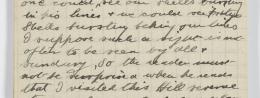 one could, see our shells bursting
in his lines & we could see
shells bursting behind our lines
I suppose such a sight is not
often to be seen by all &
sundry, so the reader must
not be surprised when he reads
that I visited this Hill several